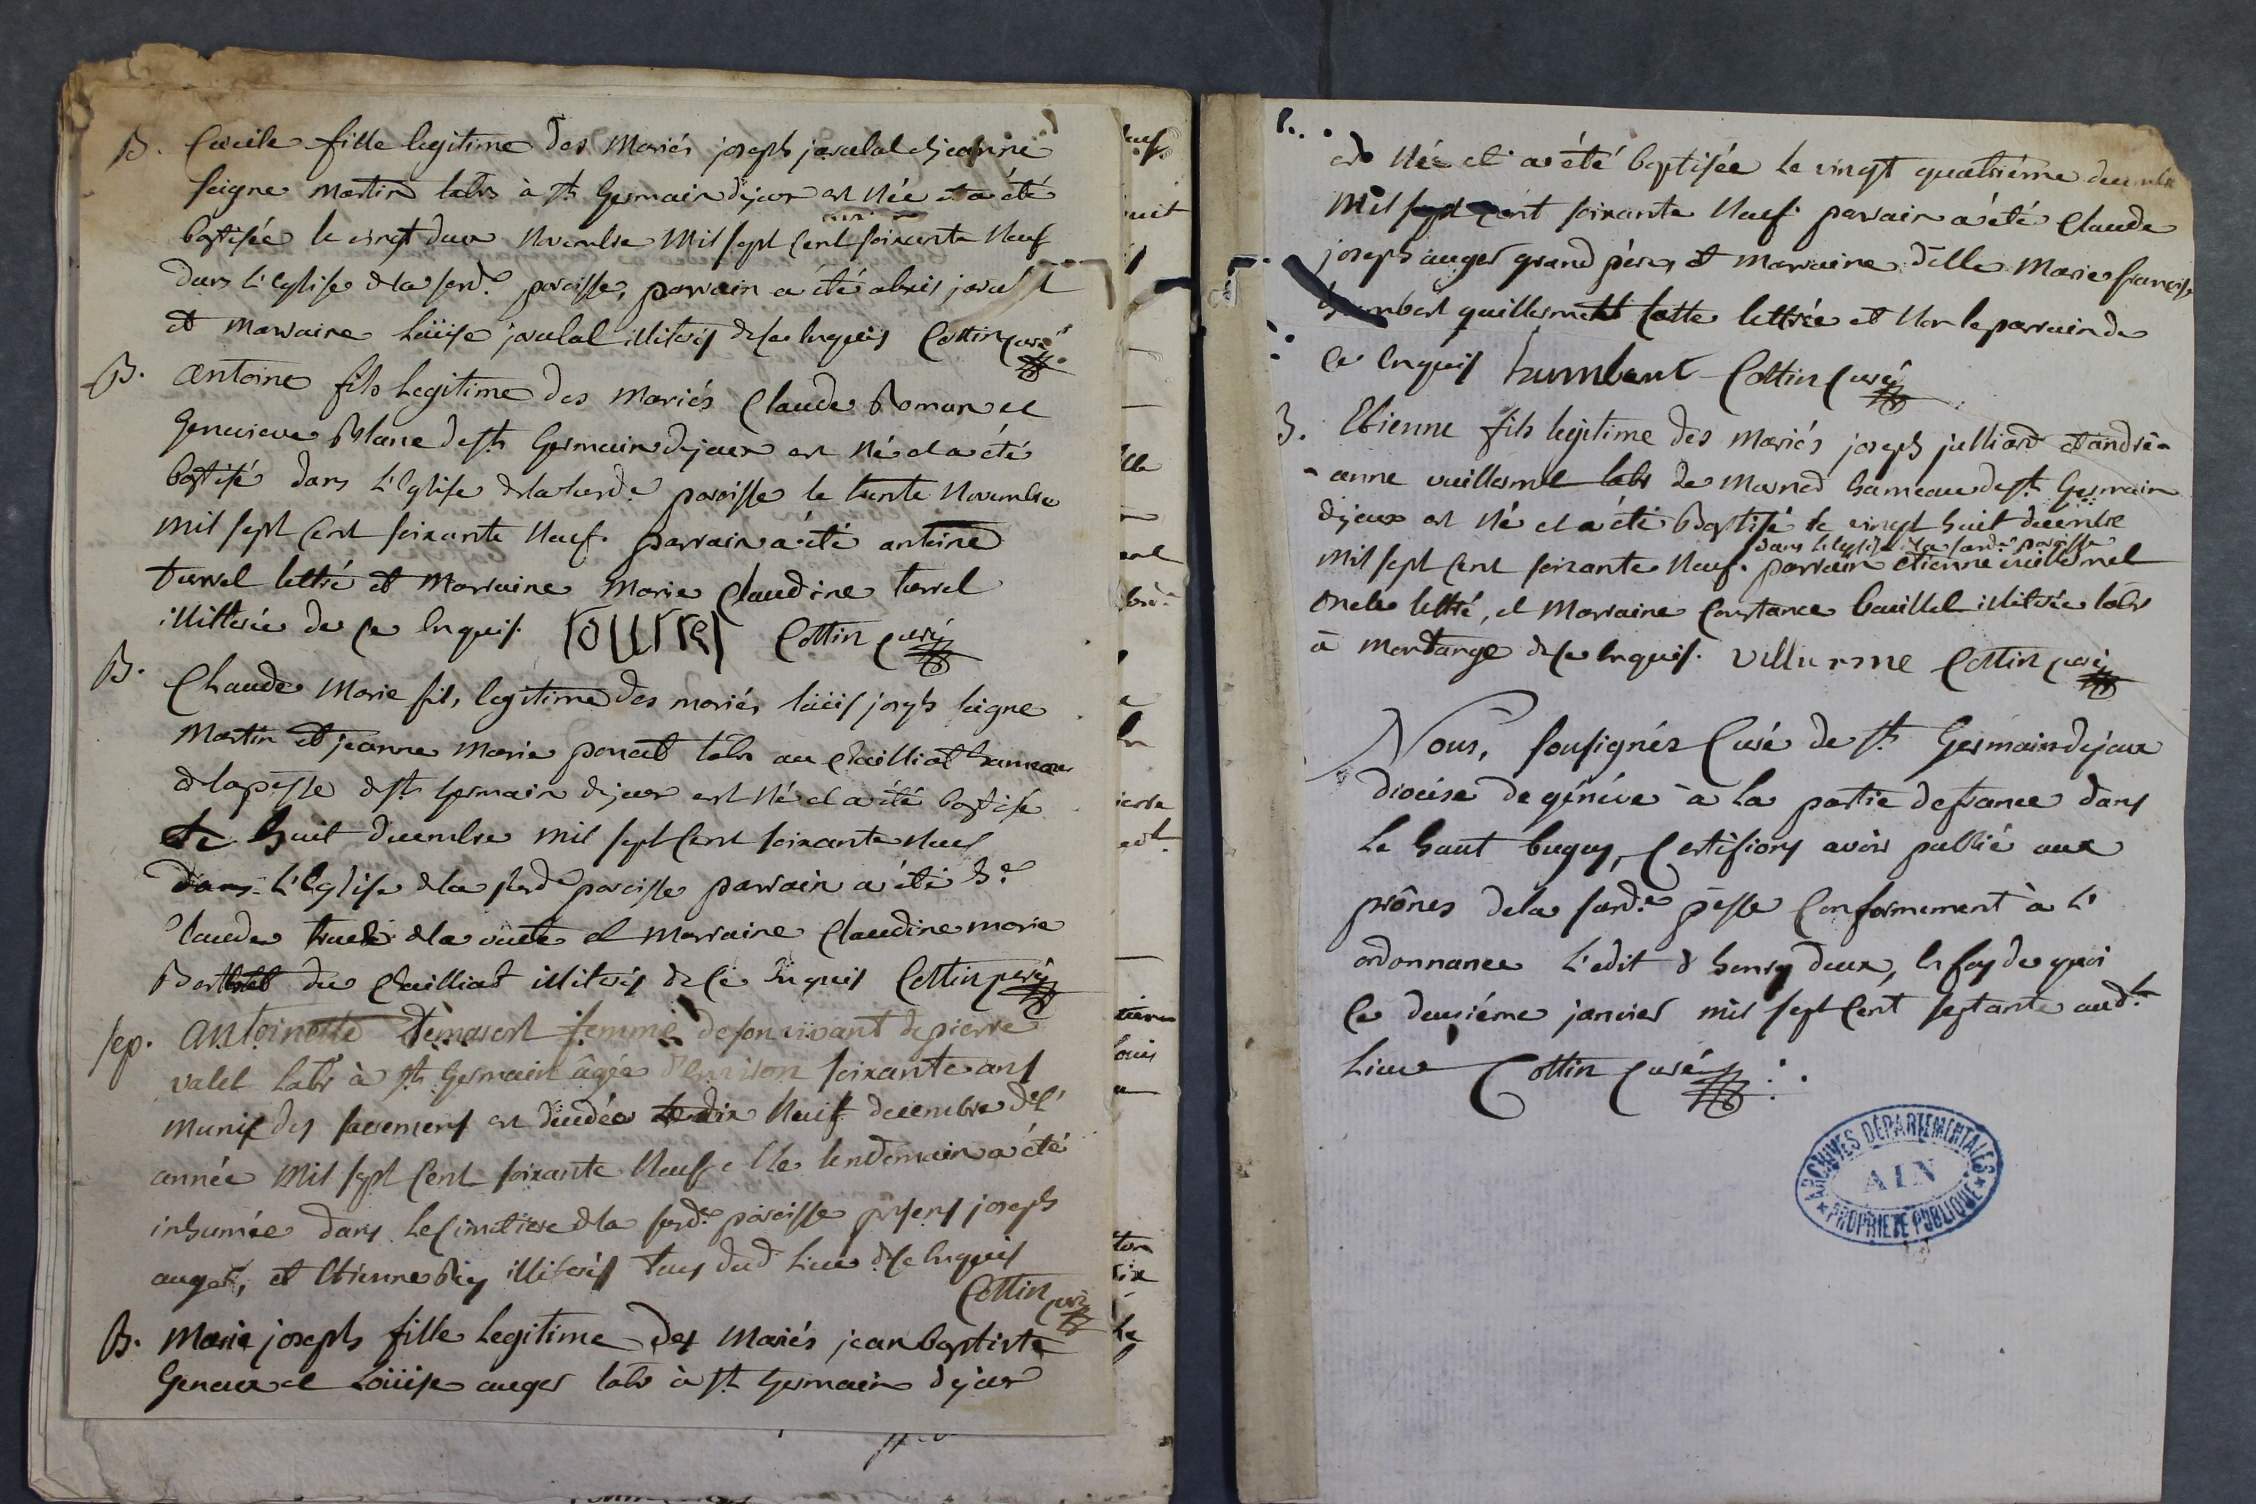 B. Cécile fille legitime des Mariés joseph javalat et jeanne
seigne martin labrs à st. Germain dejoux est Née et a été
baptisée le vingt deux Novembre Mil sept Cent soixante Neuf
dans L'Eglise de la susd.e paroisse, parrain a été
et marraine Loüise illiterés de ce Enquis Cottin Curé
B. Antoine fils Legitime des Mariés Claude Roman et
Genevieve Blanc de st. Germain dejoux est Né et a été
baptisé dans L'Eglise de la susd.e paroisse le trente Novembre
mil sept Cent soixante Neuf. parrain a été antoine
turrel lettré et Marraine Marie Claudine turrel
illitterée de Ce Enquis. Cottin Curé
B. Claude Marie fils legitime des mariés loüis joseph seigne
Martin et jeanne Marie poncet labrs au Chailliat hameau
de la pesse de st. Germain dejoux est Né et a été baptisé
le huit decembre mil sept Cent soixante Neuf
dans L'Eglise de la susd.e paroisse parrain a été
Claude de la et Marraine Claudine marie
du Chailliat illiterés de Ce Enquis Cottin Curé
sep. Antoinette femme de son vivant de pierre
valet Labr à st. Germain âgée d'environ soixante ans
munie des sacremens est decedée le dix Neuf decembre de l'
année Mil sept Cent soixante Neuf et le lendemain a été
inhumée dans Le Cimetiere de la susd.e paroisse présens joseph
auger, et Etienne Rey illiterés tous dud. Lieu de Ce Enquis
Cottin Curé
B. Marie joseph fille Legitime des Mariés jean baptiste
Genoux et Loüise auger labrs à st. Germain dejoux
est Née et a été baptisée le vingt quatriéme decembre
mil sept Cent soixante Neuf. parrain a été Claude
joseph auger grand pére, et marraine dëlle Marie françoise
humbert guillermet Cette lettrée et Non le parrain de
Ce Enquis humbert Cottin Curé
B. Etienne fils legitime des Mariés joseph julliard et andré-
-anne vuillermet labrs de Marnod hameau de st. Germain
dejoux est Né et a été Baptisé le vingt huit decembre
dans L'eglise de la susd.e paroisse
mil sept Cent soixante Neuf. parrain etienne vuillermet
oncle lettré, et Marraine Constance bouillet illiterée labrs
à montange de Ce Enquis. villurme Cottin Curé
Nous, sousignés Curé de st. Germain dejoux
diocése de généve à la partie de france dans
Le haut bugey, Certifions avoir publié aux
prônes de la susd.e pësse Conformement à L'
ordonnance L'edit d'henry deux, En foy de quoi
Ce deuxiéme janvier mil sept Cent septante aud.t
Lieu Cottin Curé
ARCHIVES DEPARTEMENTALES
AIN
PROPRIETE PUBLIQUE